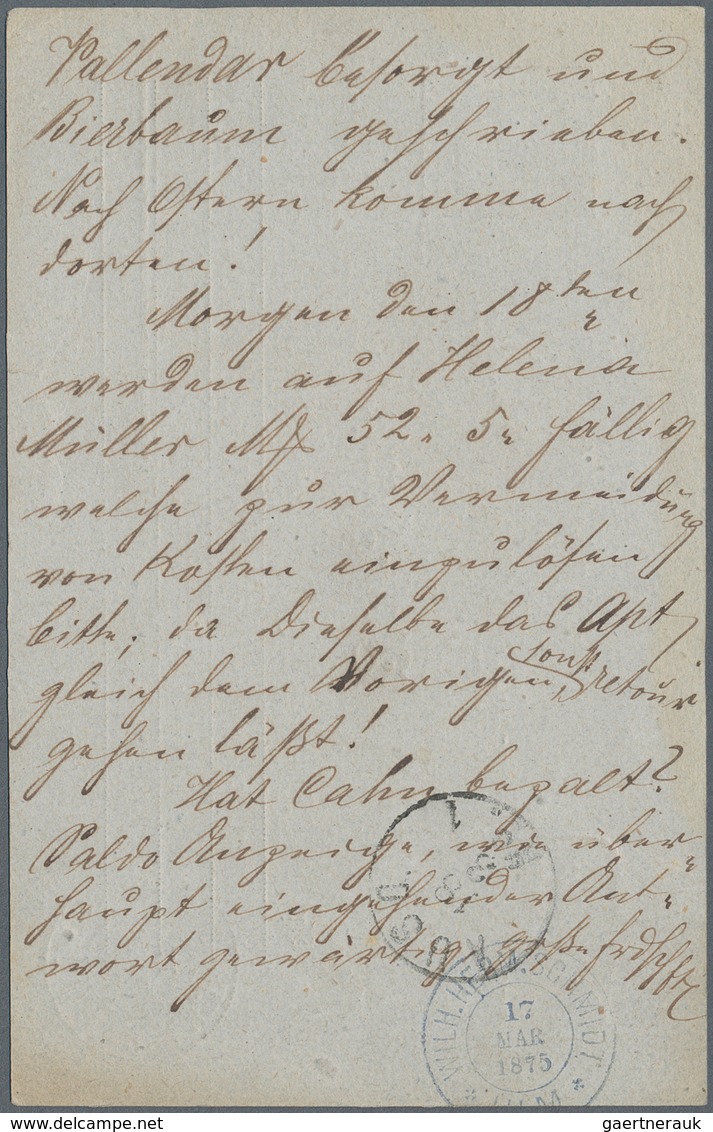 Vallendar besorgt und
Bierbaum geschrieben.
Nach Ostern komme nach
dorten!
Morgen den 18ten
werden auf Helena
Müller Mk 52. 5. fällig
welche zur Vermeidung
von Kosten einzulösen
bitte, da dieselbe das Apt
gleich dem Vorigen, sonst retour
gehen läßt!
Hat Cahn bezalt?
Saldo Anzeige, wie über-
haupt eingehender Ant-
wort gewärtig
WILH. HERM. SCHMIDT
17
MAR
1875
gaertnerauk